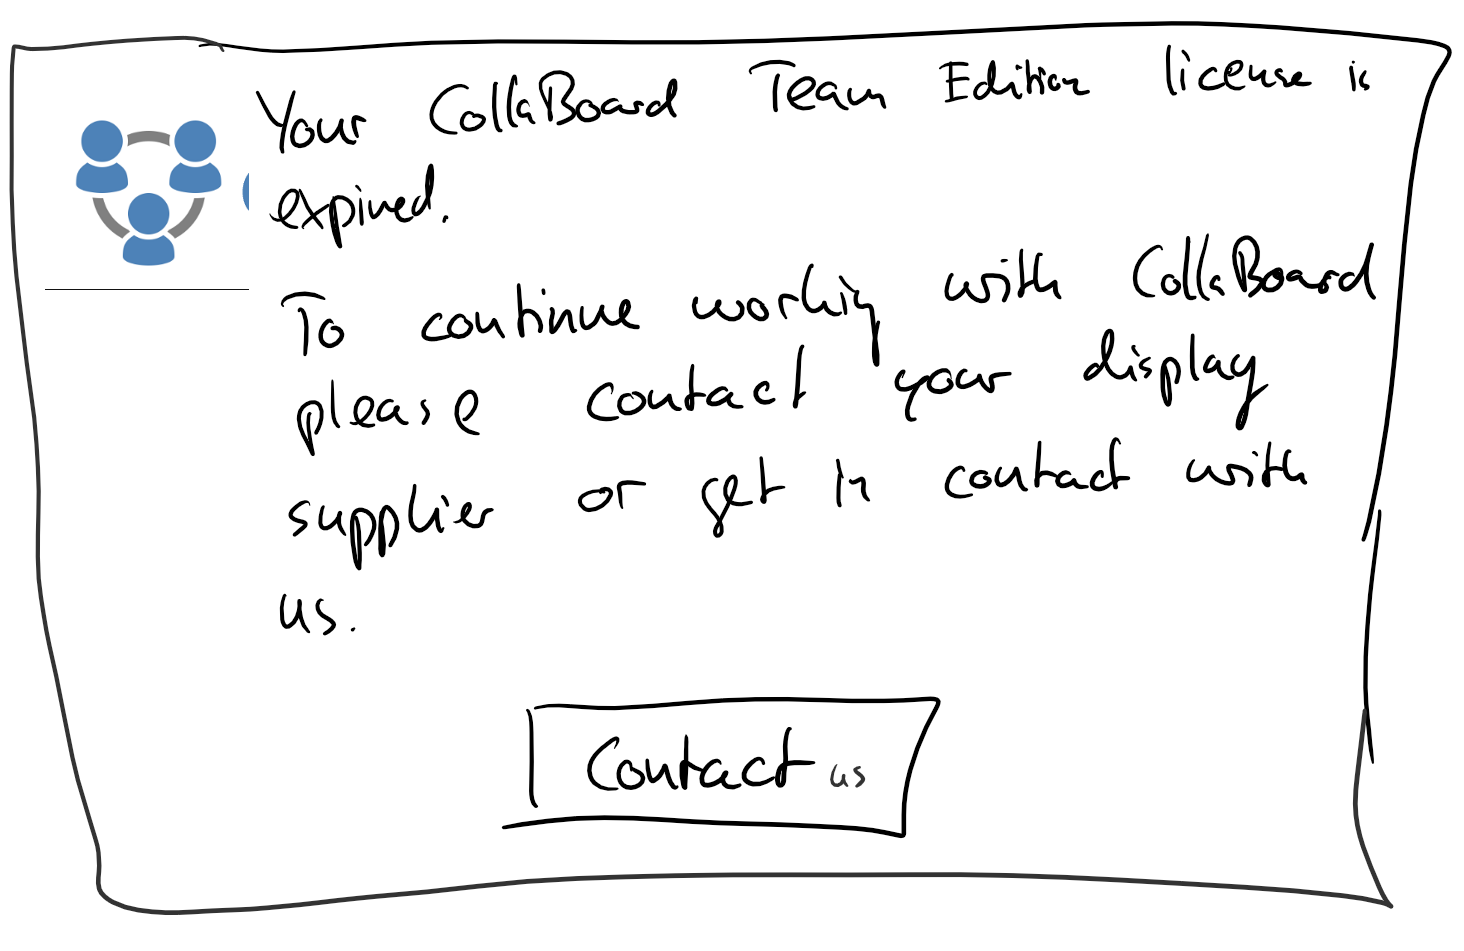 Your CollaBoard Team Edition license is
expired.
To continue working with CollaBoard
please contact your display
supplier or get in contact with
us.
Contact us